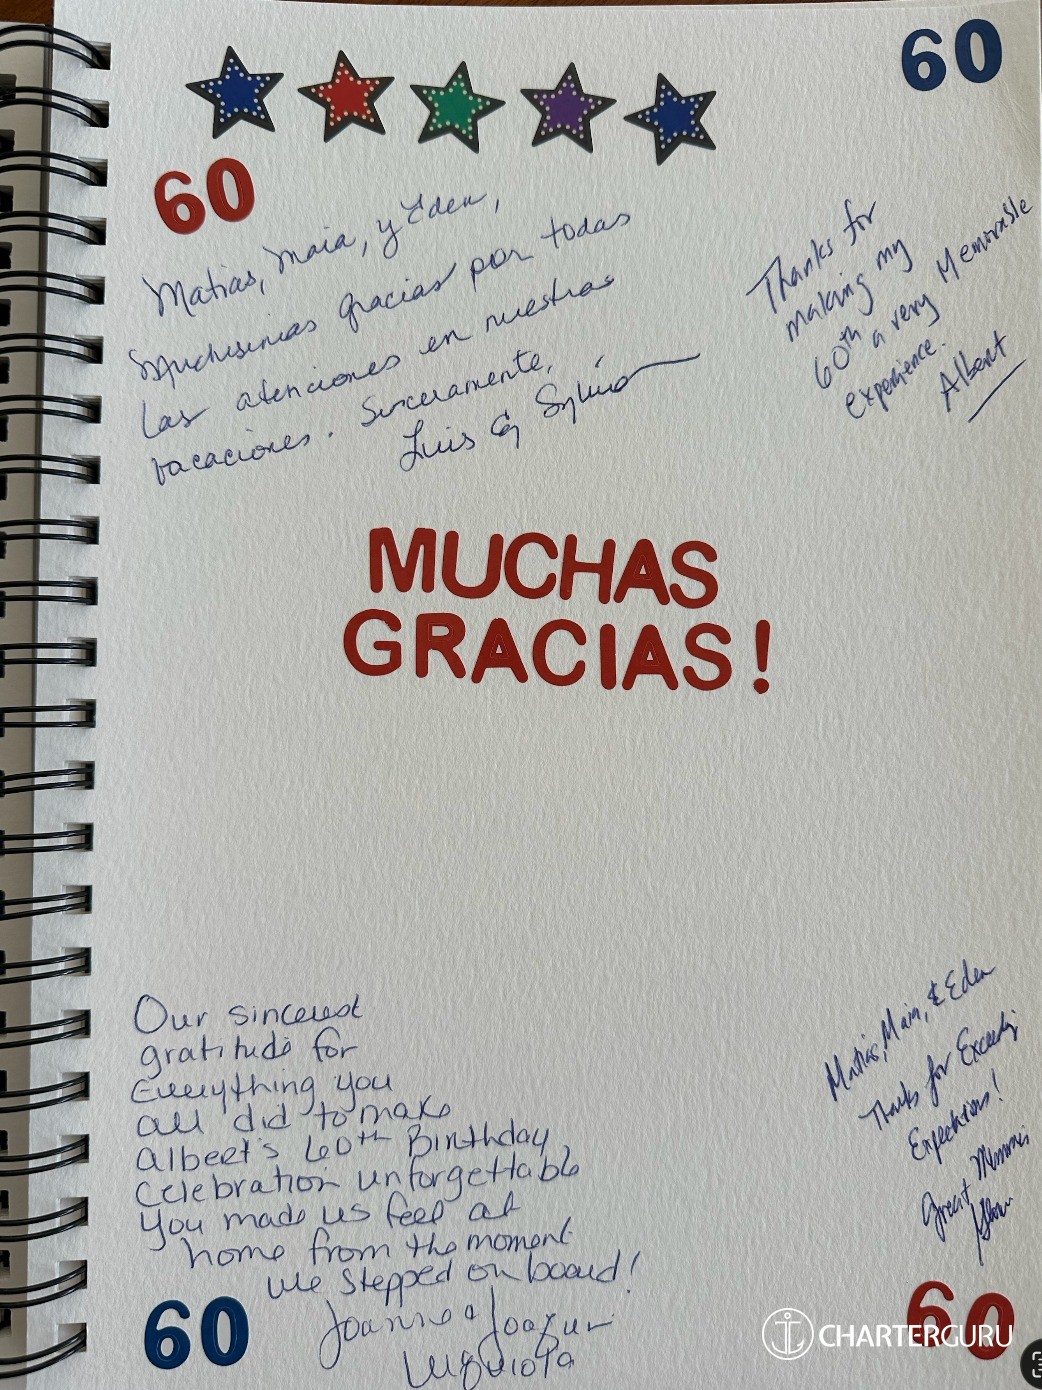 60
60
Matias, Maia, y Eden,
Muchisimas gracias por todas
las atenciones en nuestras
vacaciones. Sinceramente,
Luis & Sylvia
Thanks for
making my
60th a very Memorable
experience.
Albert
MUCHAS
GRACIAS!
Our sincerest
gratitude for
Everything you
all did to make
Albert's 60th Birthday
Celebration unforgettable
You made us feel at
home from the moment
we stepped on board!
Joanne & Joaquin
Matias, Maia, & Eden
Thanks for Exceeding
Expectations!
Great Memories
60
60
CHARTERGURU